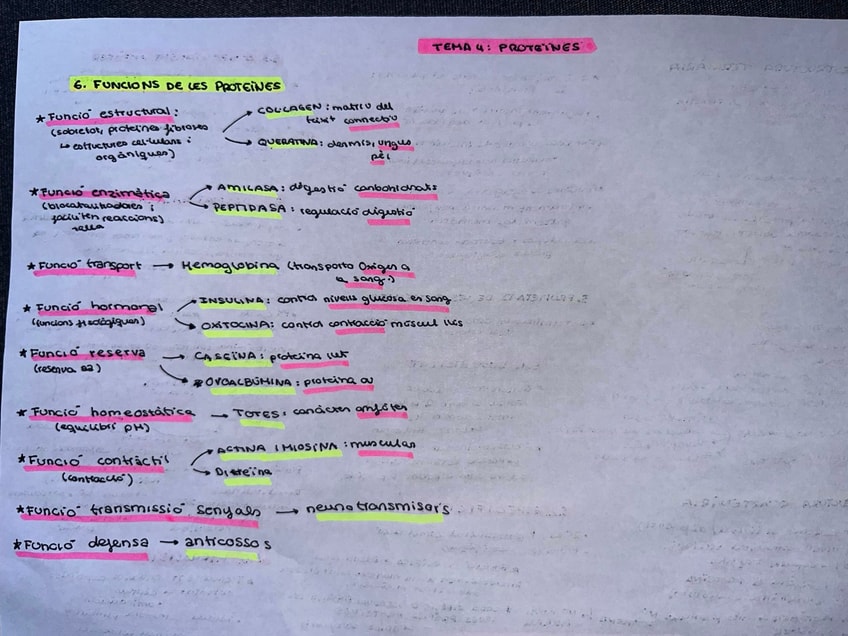 TEMA 4: PROTEÏNES
6. FUNCIONS DE LES PROTEÏNES
* Funció estructural:
(sobretot, proteïnes fibroses
↳ estructures cel·lulars i
orgàniques)
→ COL·LAGEN: matriu del
teixit connectiu
→ QUERATINA: dermis, ungles
pèl
* Funció enzimàtica
(biocatalitzadores i
faciliten reaccions)
→ AMILASA: digestió carbohidrats
→ PEPTIDASA: regulació digestió
* Funció transport → Hemoglobina (transporta Oxigen a
a sang.)
* Funció hormonal
(funcions fisiològiques)
→ INSULINA: control nivells glucosa en sang
→ OXITOCINA: control contracció múscul llis
* Funció reserva
(reserva aa)
→ CASEÏNA: proteïna llet
→ OVOALBÚMINA: proteïna ou
* Funció homeostàtica → TOTES: caràcter amfòter
(equilibri pH)
* Funció contràctil
(contracció)
→ ACTINA I MIOSINA: muscular
→ Dineïna
* Funció transmissió senyals → neurotransmisors
* Funció defensa → anticossos